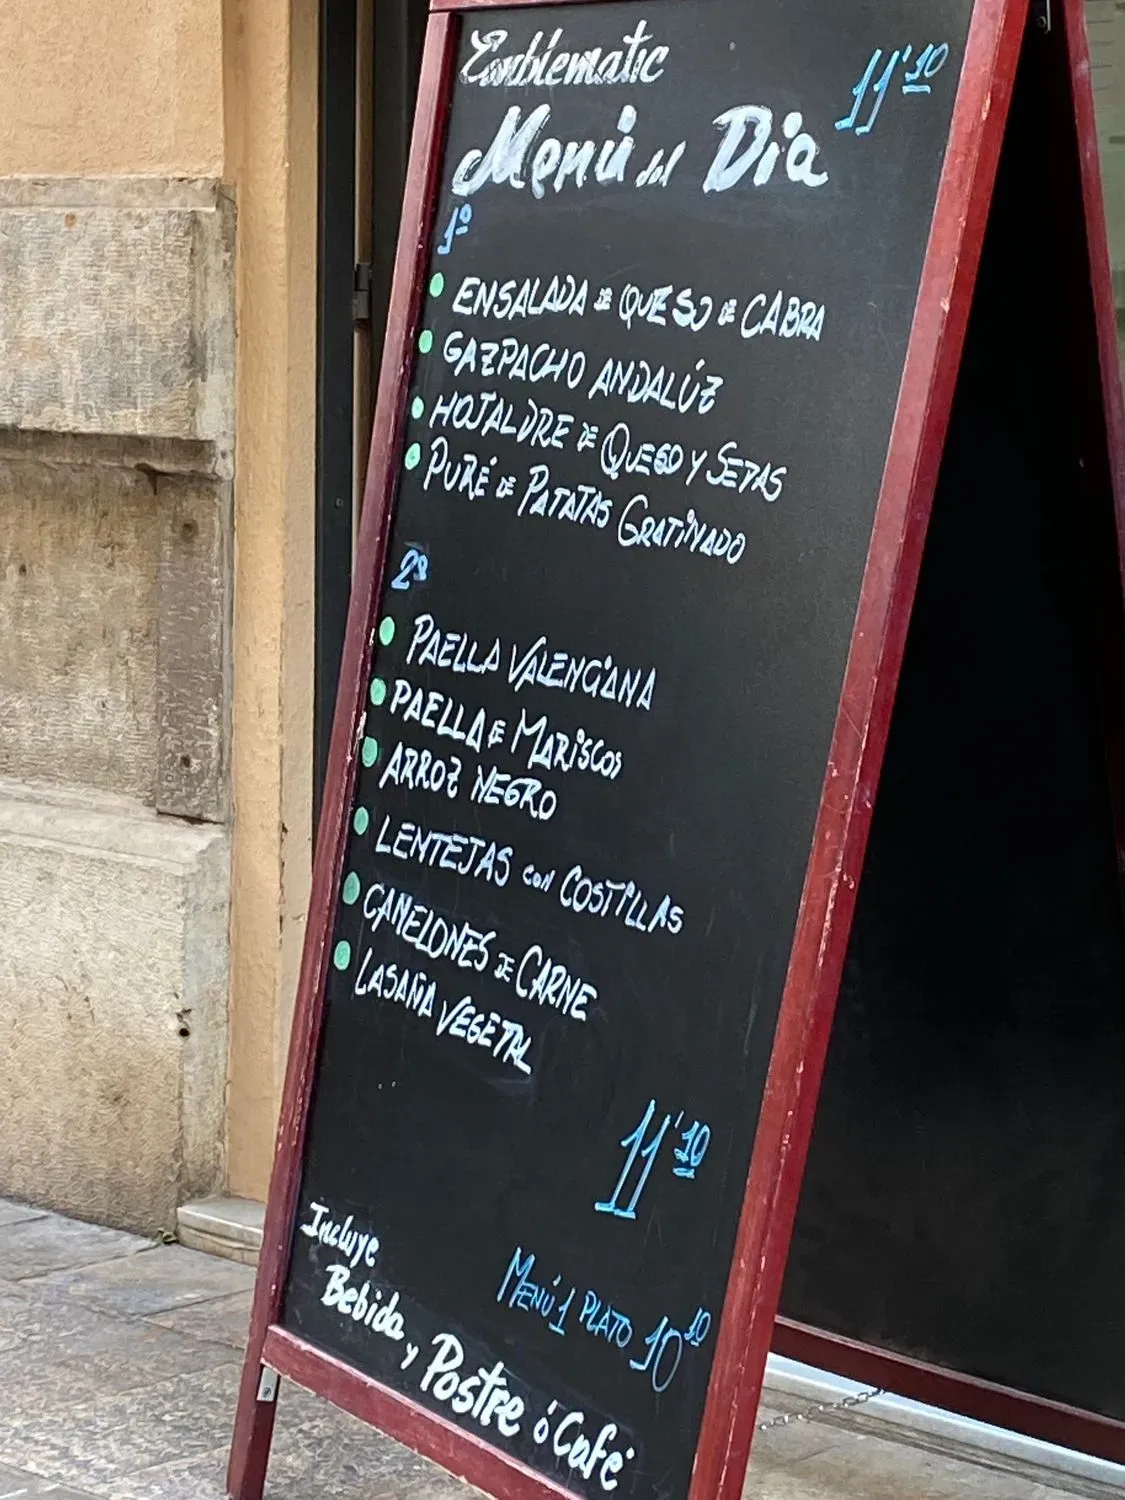 Emblematic
11'10
Menú del Día
1º
ENSALADA DE QUESO DE CABRA
GAZPACHO ANDALÚZ
HOJALDRE DE QUESO Y SETAS
PURÉ DE PATATAS GRATINADO
2º
PAELLA VALENCIANA
PAELLA DE MARISCOS
ARROZ NEGRO
LENTEJAS con COSTILLAS
CANELONES DE CARNE
LASAÑA VEGETAL
11'10
Incluye
Bebida y Postre ó Café
MENÚ 1 PLATO 10'10